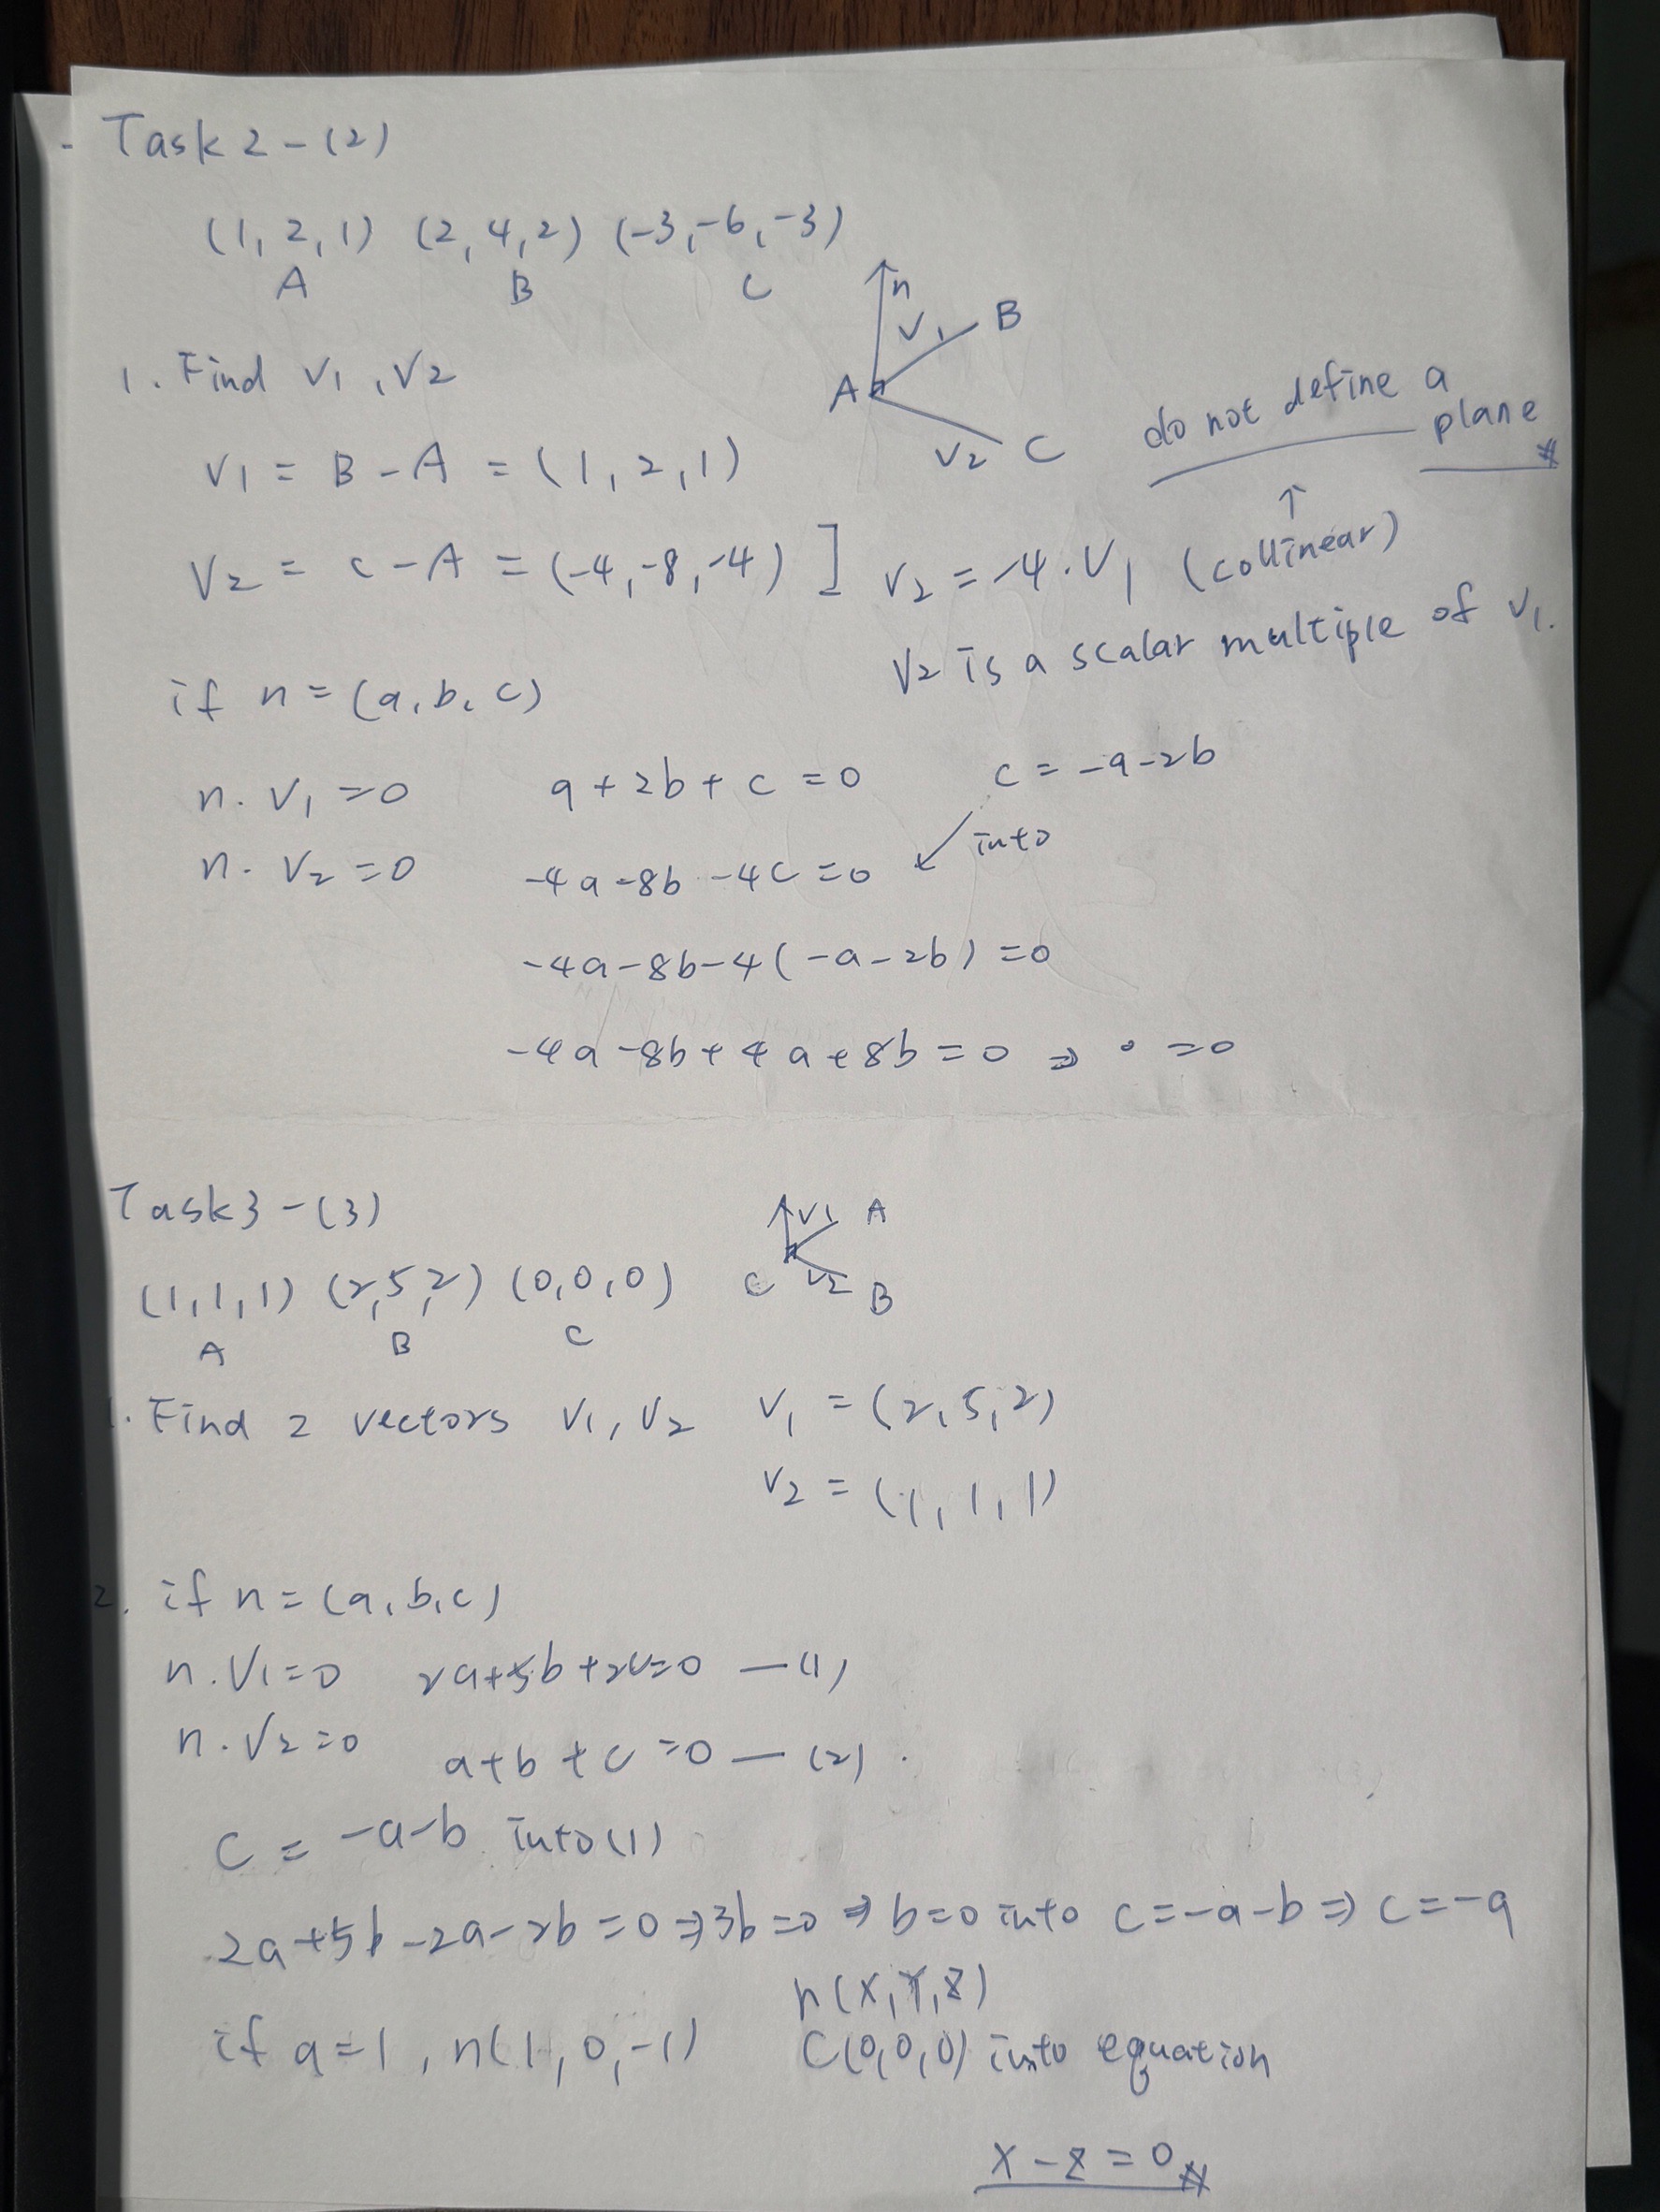 Task 2 - (2)
(1, 2, 1) (2, 4, 2) (-3, -6, -3)
A B C
n
V1 B
A
V2 C
1. Find V1, V2
do not define a
plane
V1 = B - A = (1, 2, 1)
↑
V2 = C - A = (-4, -8, -4) ] V2 = -4 · V1 (collinear)
V2 is a scalar multiple of V1.
if n = (a, b, c)
n · V1 = 0 a + 2b + c = 0 c = -a - 2b
into
n · V2 = 0 -4a - 8b - 4c = 0
-4a - 8b - 4(-a - 2b) = 0
-4a - 8b + 4a + 8b = 0 ⇒ 0 = 0
Task 3 - (3)
V1 A
C V2 B
(1, 1, 1) (2, 5, 2) (0, 0, 0)
A B C
1. Find 2 vectors V1, V2 V1 = (2, 5, 2)
V2 = (1, 1, 1)
2. if n = (a, b, c)
n · V1 = 0 2a + 5b + 2c = 0 — (1)
n · V2 = 0 a + b + c = 0 — (2)
C = -a - b into (1)
2a + 5b - 2a - 2b = 0 ⇒ 3b = 0 ⇒ b = 0 into c = -a - b ⇒ c = -a
n(X, Y, Z)
if a = 1, n(1, 0, -1) C(0, 0, 0) into equation
X - Z = 0